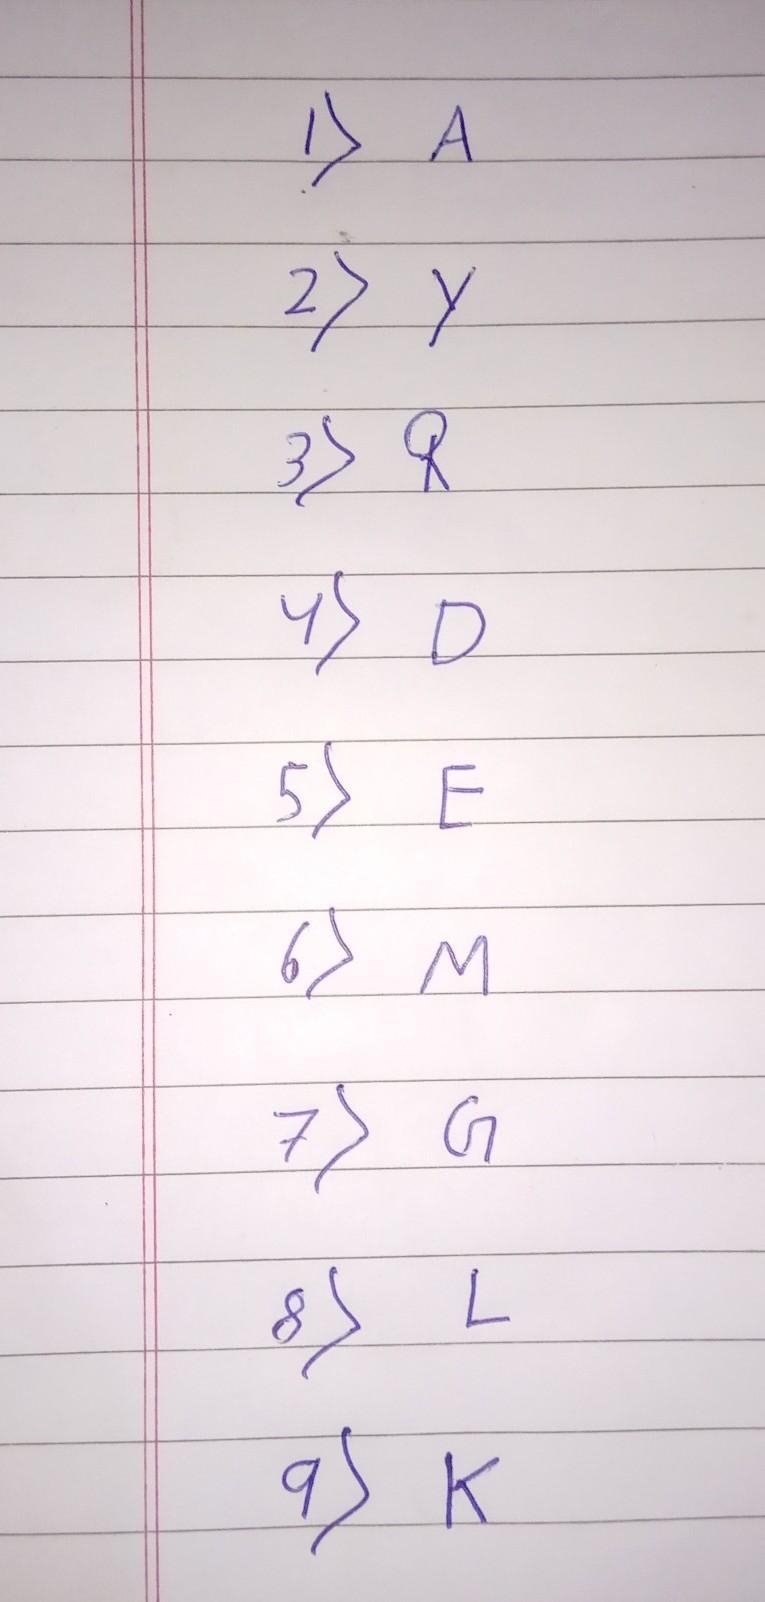 1> A
2> Y
3> R
4> D
5> E
6> M
7> G
8> L
9> K